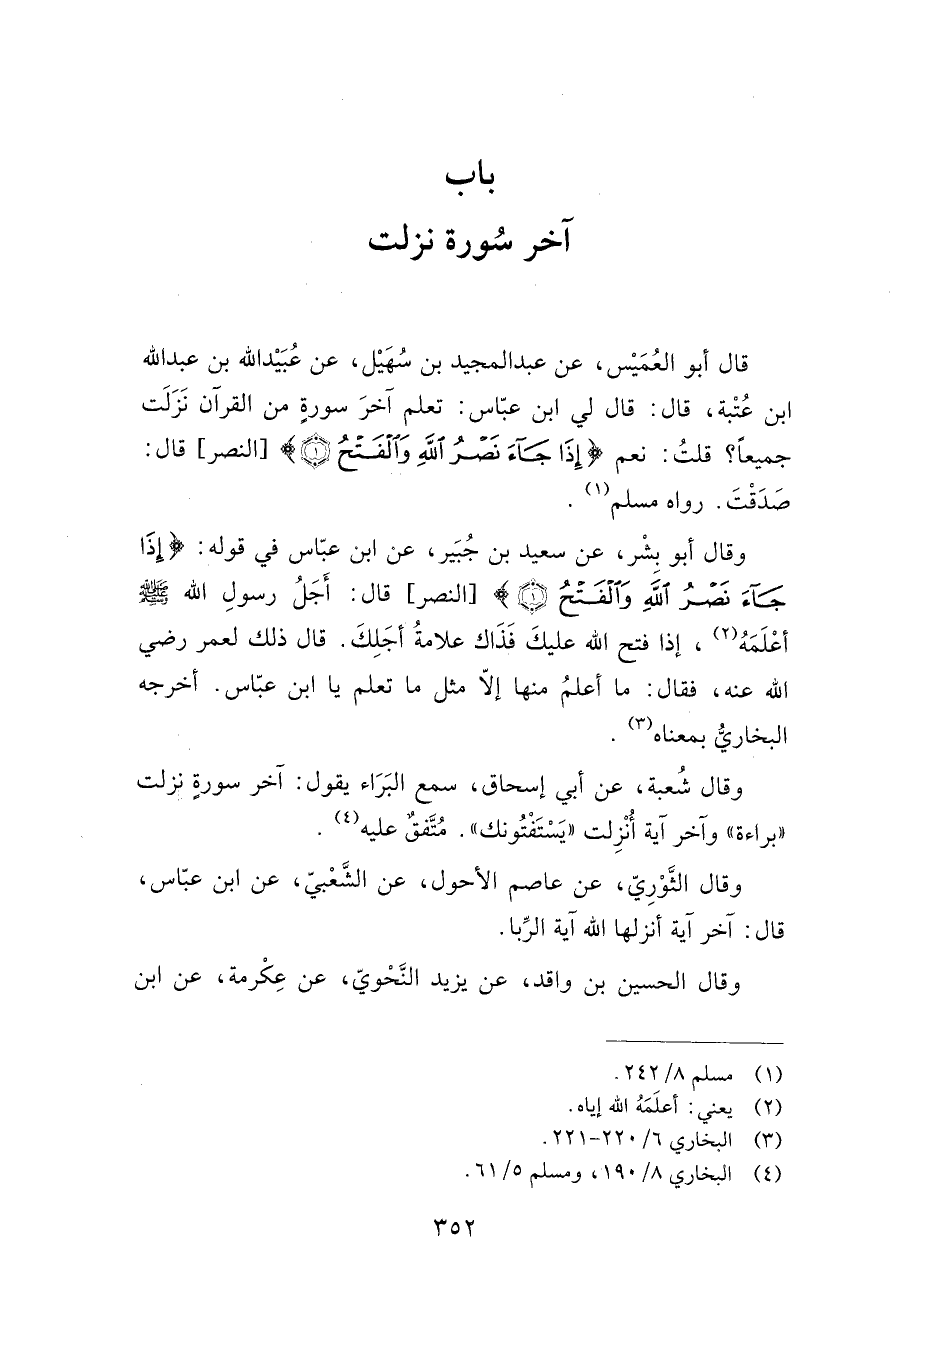 باب
آخر سُورة نزلت
قال أبو العُمَيْس، عن عبدالمجيد بن سُهَيْل، عن عُبَيْدالله بن عبدالله
ابن عُتْبة، قال: قال لي ابن عبّاس: تعلم آخرَ سورةٍ من القرآن نَزَلَت
جميعاً؟ قلتُ: نعم ﴿إِذَا جَآءَ نَصْرُ ٱللَّهِ وَٱلْفَتْحُ ۝١﴾ [النصر] قال:
صَدَقْتَ. رواه مسلم(١).
وقال أبو بِشْر، عن سعيد بن جُبَير، عن ابن عبّاس في قوله: ﴿إِذَا
جَآءَ نَصْرُ ٱللَّهِ وَٱلْفَتْحُ ۝١﴾ [النصر] قال: أَجَلُ رسولِ الله ﷺ
أعْلَمَهُ(٢)، إذا فتح الله عليكَ فَذَاك علامةُ أجَلِكَ. قال ذلك لعمر رضي
الله عنه، فقال: ما أعلمُ منها إلاّ مثل ما تعلم يا ابن عبّاس. أخرجه
البخاريُّ بمعناه(٣).
وقال شُعبة، عن أبي إسحاق، سمع البَرَاء يقول: آخر سورةٍ نزلت
«براءة» وآخر آية أُنْزِلت «يَسْتَفْتُونك». مُتَّفقٌ عليه(٤).
وقال الثَّوْرِيّ، عن عاصم الأحول، عن الشَّعْبيّ، عن ابن عبّاس،
قال: آخر آية أنزلها الله آية الرِّبا.
وقال الحسين بن واقد، عن يزيد النَّحْويّ، عن عِكْرمة، عن ابن
(١) مسلم ٨/ ٢٤٢.
(٢) يعني: أعلَمَهُ الله إياه.
(٣) البخاري ٦/ ٢٢٠-٢٢١.
(٤) البخاري ٨/ ١٩٠، ومسلم ٥/ ٦١.
٣٥٢